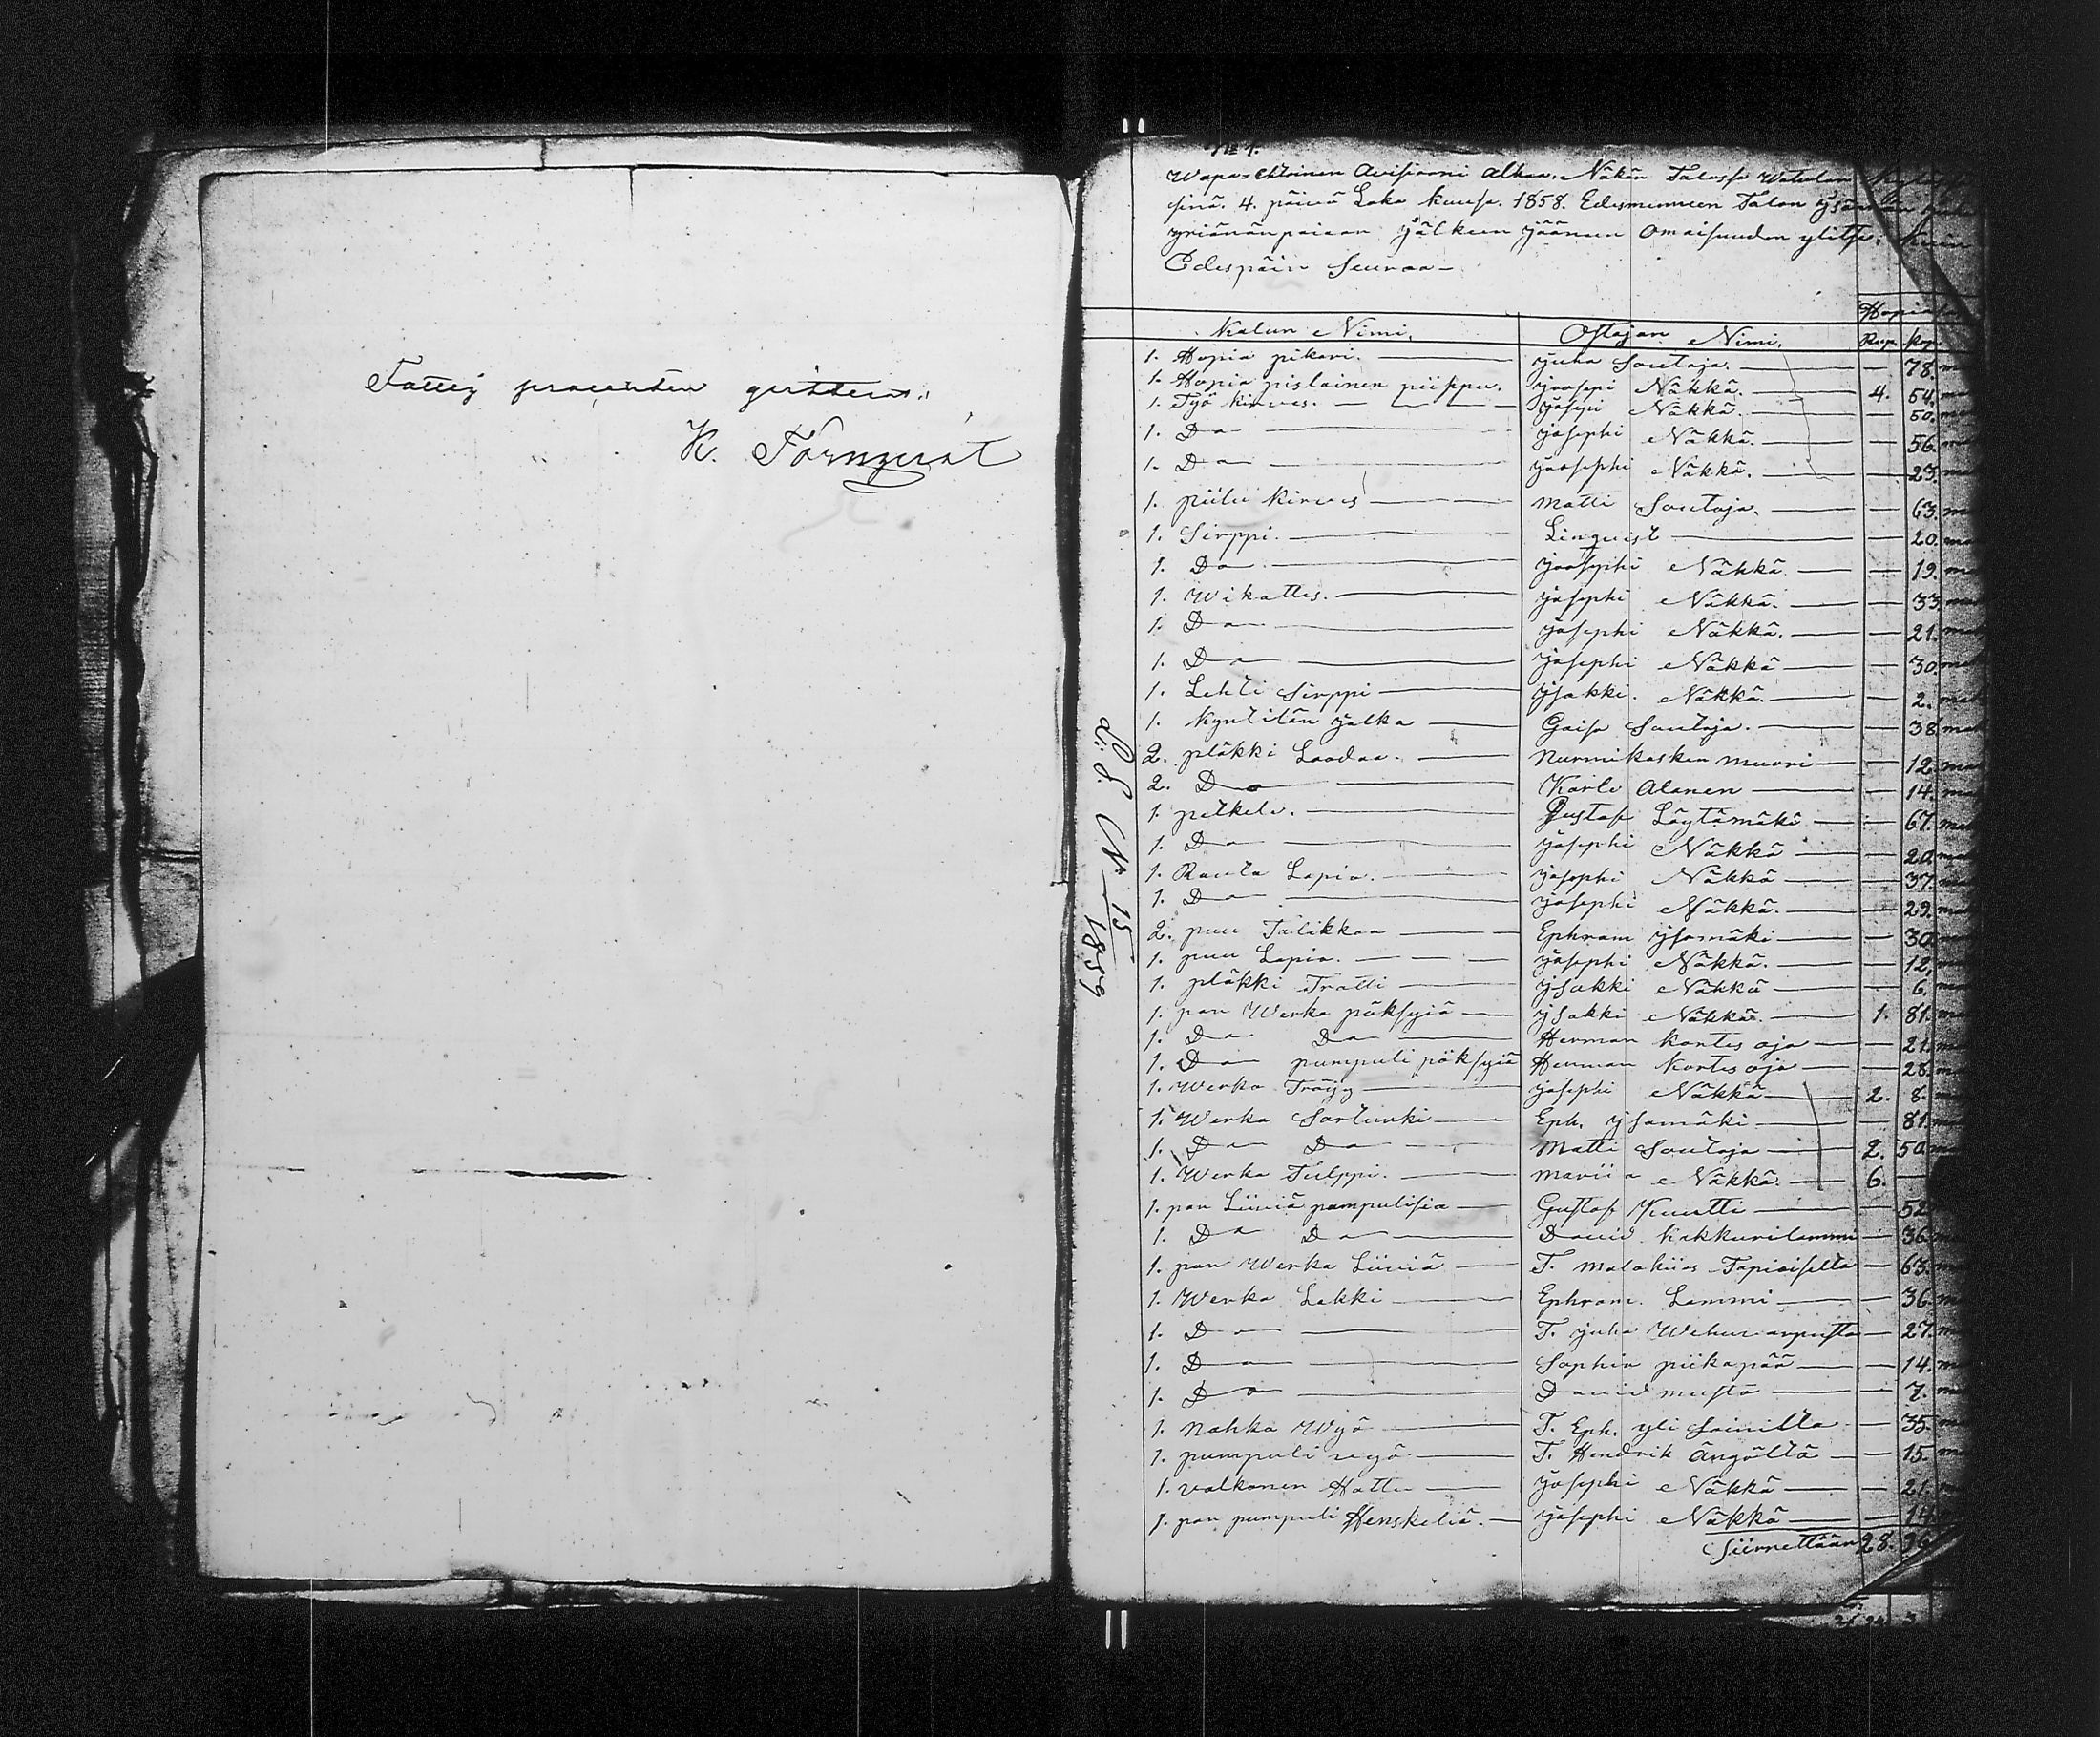 Fattig procenten guitteras.
K. Törnqvist
L: S. N: 15/1859
No 1.
Wapa-Ehtoinen Auisiooni alkaa. Näkän Talossa Watulan kyläss
sinä. 4. päivä Loka kuusa. 1858. Edesmenneen Talon Ysännän
yriänänpoian jälkeen jääneen omaisuuden ylitse. kuin
Edespäin Seuraa—
Hopiasa
Kalun Nimi. Ostajan Nimi. Rup. kop.
1. Hopia pikari. — Juha Soutaja. — 78.
1. Hopia pislainen piippu. Joosepi Näkkä. — 4. 54.
1. Työ kirves. — Josepi Näkkä. — 50.
1. Do — Josephi Näkkä. — 56.
1. Do — Joosephi Näkkä. — 23.
1. piilu kirves — Matti Soutaja. — 63.
1. Sirppi. — Linquist — 20.
1. Do — Joosephi Näkkä — 19.
1. Wikattes. — Josephi Näkkä. — 33.
1. Do — Josephi Näkkä. — 21.
1. Do — Josephi Näkkä — 30.
1. Lehti Sirppi — Jsakki. Näkkä. — 2.
1. kyntilän jalka — Gaisa Soutaja. — 38.
2. pläkki Loodaa. — Nurmikosken muori — 12.
2. Do — Karle Alanen — 14.
1. petkele. — Gustaf Löytämäki — 67.
1. Do — Josephi Näkkä — 20.
1. Rauta Lapia. — Josephi Näkkä — 37.
1. Do — Josephi Näkkä. — 29.
2. puu Talikkoa — Ephram Ysomäki — 30.
1. puu Lapia. — Josephi Näkkä. — 12.
1. pläkki Tratti — Jsakki Näkkä — 6.
1. par Werka pöksyiä — Jsakki Näkkä. — 1. 81.
1. Do Do — Herman kortes oja — 21.
1. Do pumpuli pöksyiä Herman kortes oja — 28.
1. Werka Tröijy — Josephi Näkkä — 2. 8.
1. Werka Sortuuki — Eph. Ysomäki — 81.
1. Do Do — Matti Soutaja — 2. 50.
1. Werka Tulppi. — Mariia Näkkä. — 6. —
1. par Liiviä pumpulisia — Gustaf Kuutti — 52.
1. Do Do — David kakkurilammi — 36.
1. par Werka Liiviä — T. Malakiias Tapioiselta — 63.
1. Werka Lakki — Ephram. Lammi — 36.
1. Do — T. Juha — 27.
1. Do — Sophia piikapää — 14.
1. Do — David musta — 7.
1. Nahka Wyö — T. Eph. yli Sainilta — 35.
1. pumpuli vyö — T. Hendrik Ängöltä — 15.
1. valkonen Hattu — Josephi Näkkä — 21.
1. par pumpuli Henskeliä. — Josephi Näkkä — 14.
Siirrettään 28. 96